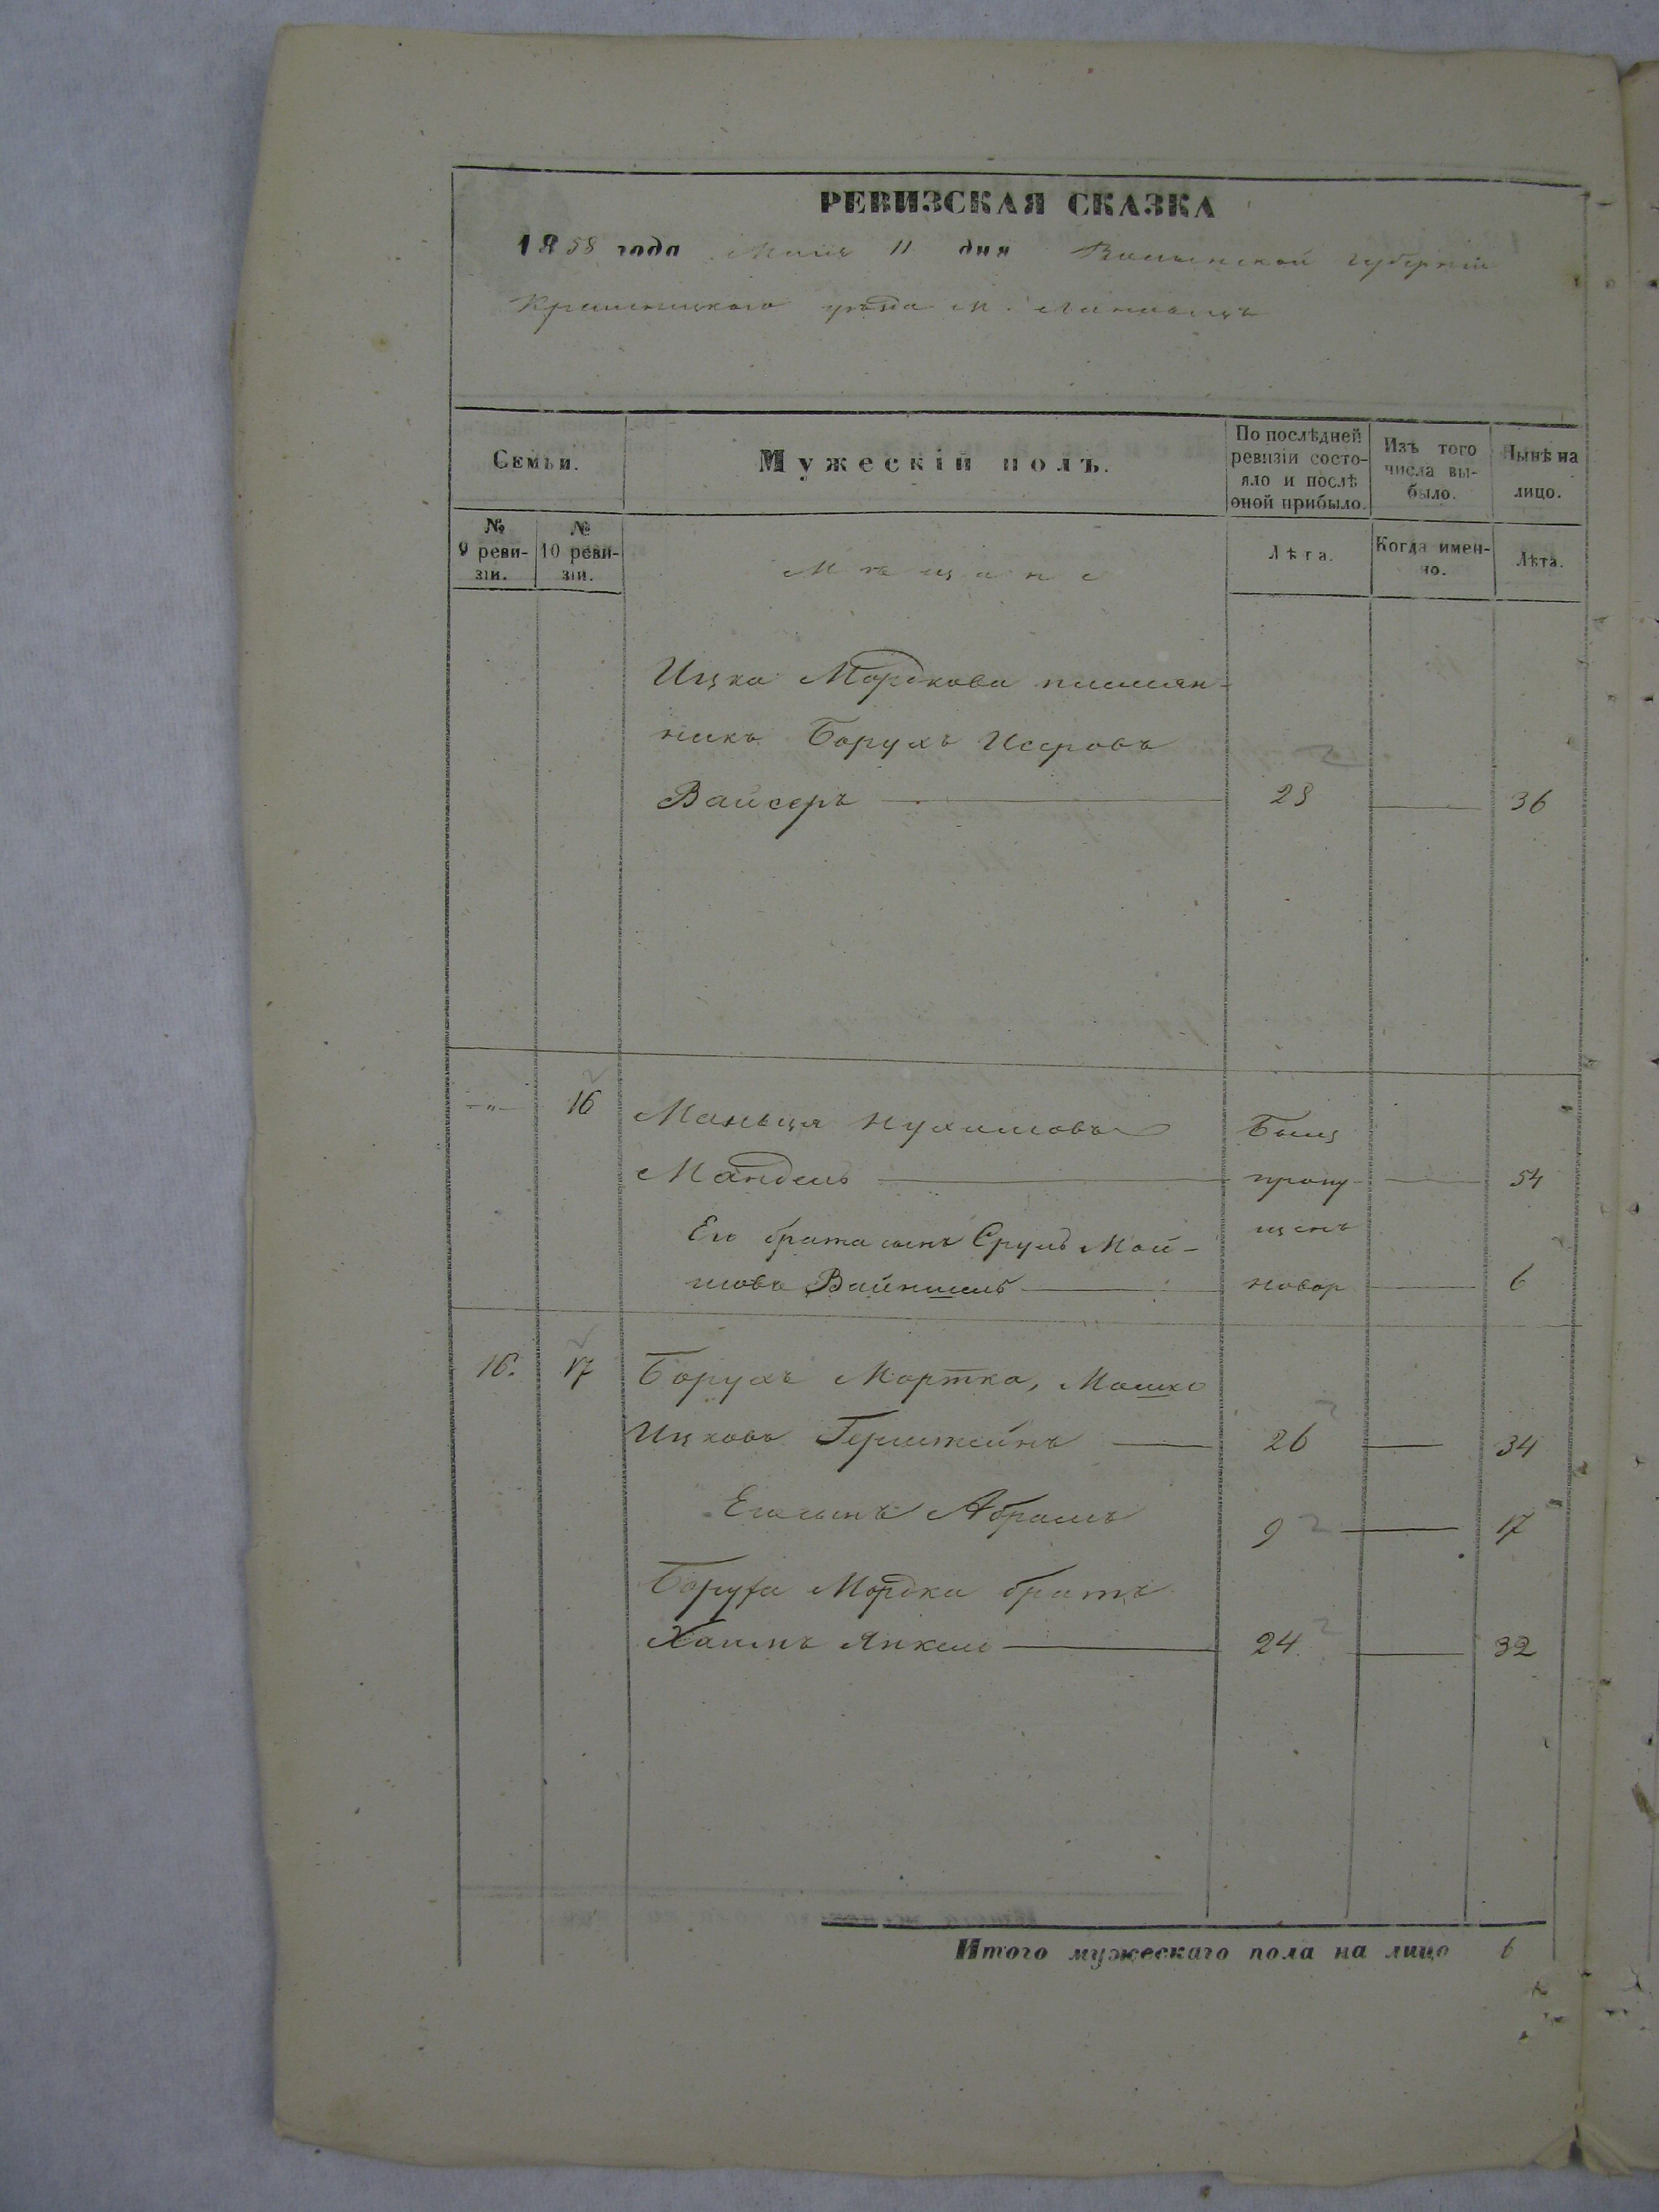 РЕВИЗСКАЯ СКАЗКА
1858 года Маія 11 дня Волынской губерніи
Кременецкого уѣзда М.
Семьи.
Мужескій полъ.
По послѣдней ревизіи состояло и послѣ оной прибыло.
Изъ того числа выбыло.
Нынѣ на лицо.
№ 9 ревизіи.
№ 10 ревизіи.
Мѣщане
Лѣта.
Когда именно.
Лѣта.
Ицка Мордкова племян-
никъ Борухъ Исеровъ
Вайсеръ 28 36
16 Маньця Нухимовъ Былъ
Мандель пропу- 54
Его брата сынъ Сруль Мой- щенъ
шовъ Вайншель новор 6
16. 17 Борухъ Мортко, Мошко
Ицковъ Герштейнъ 26 34
Его сынъ Абрамъ 9 17
Боруха Мордка братъ
Хаимъ Янкель 24 32
Итого мужескаго пола на лицо 6